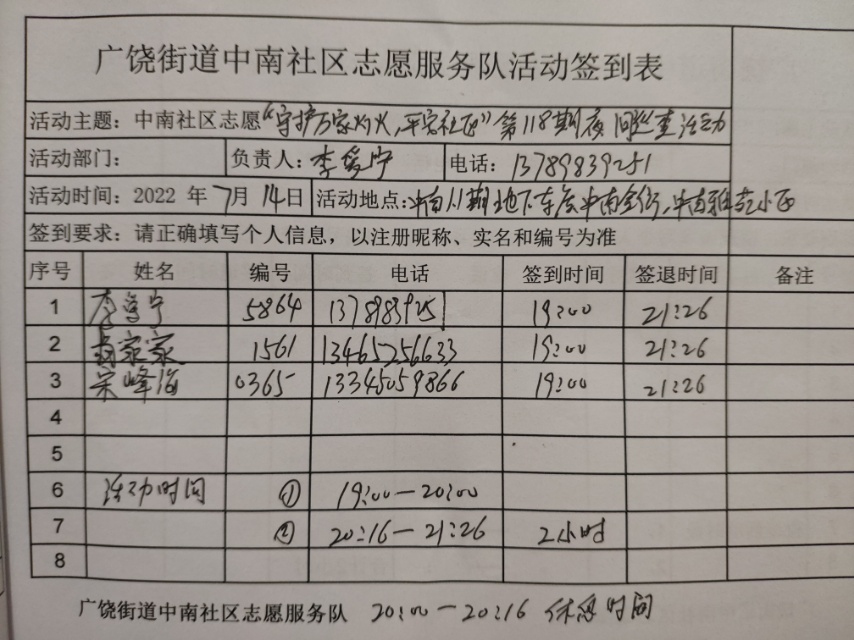 广饶街道中南社区志愿服务队活动签到表
活动主题：中南社区志愿“守护万家灯火，平安社区”第118期夜间巡查活动
活动部门： 负责人：李宁 电话：13789839251
活动时间：2022 年 7月 14日 活动地点：中南11期地下车库中南金街，中南雅苑小区
签到要求：请正确填写个人信息，以注册昵称、实名和编号为准
序号 姓名 编号 电话 签到时间 签退时间 备注
1 李宁 5864 13789839251 19:00 21:26
2 家家 1561 13465256633 19:00 21:26
3 宋峰海 0365 13345059866 19:00 21:26
4
5
6 活动时间 ① 19:00—20:00
7 ② 20:16—21:26 2小时
8
广饶街道中南社区志愿服务队 20:00—20:16 休息时间